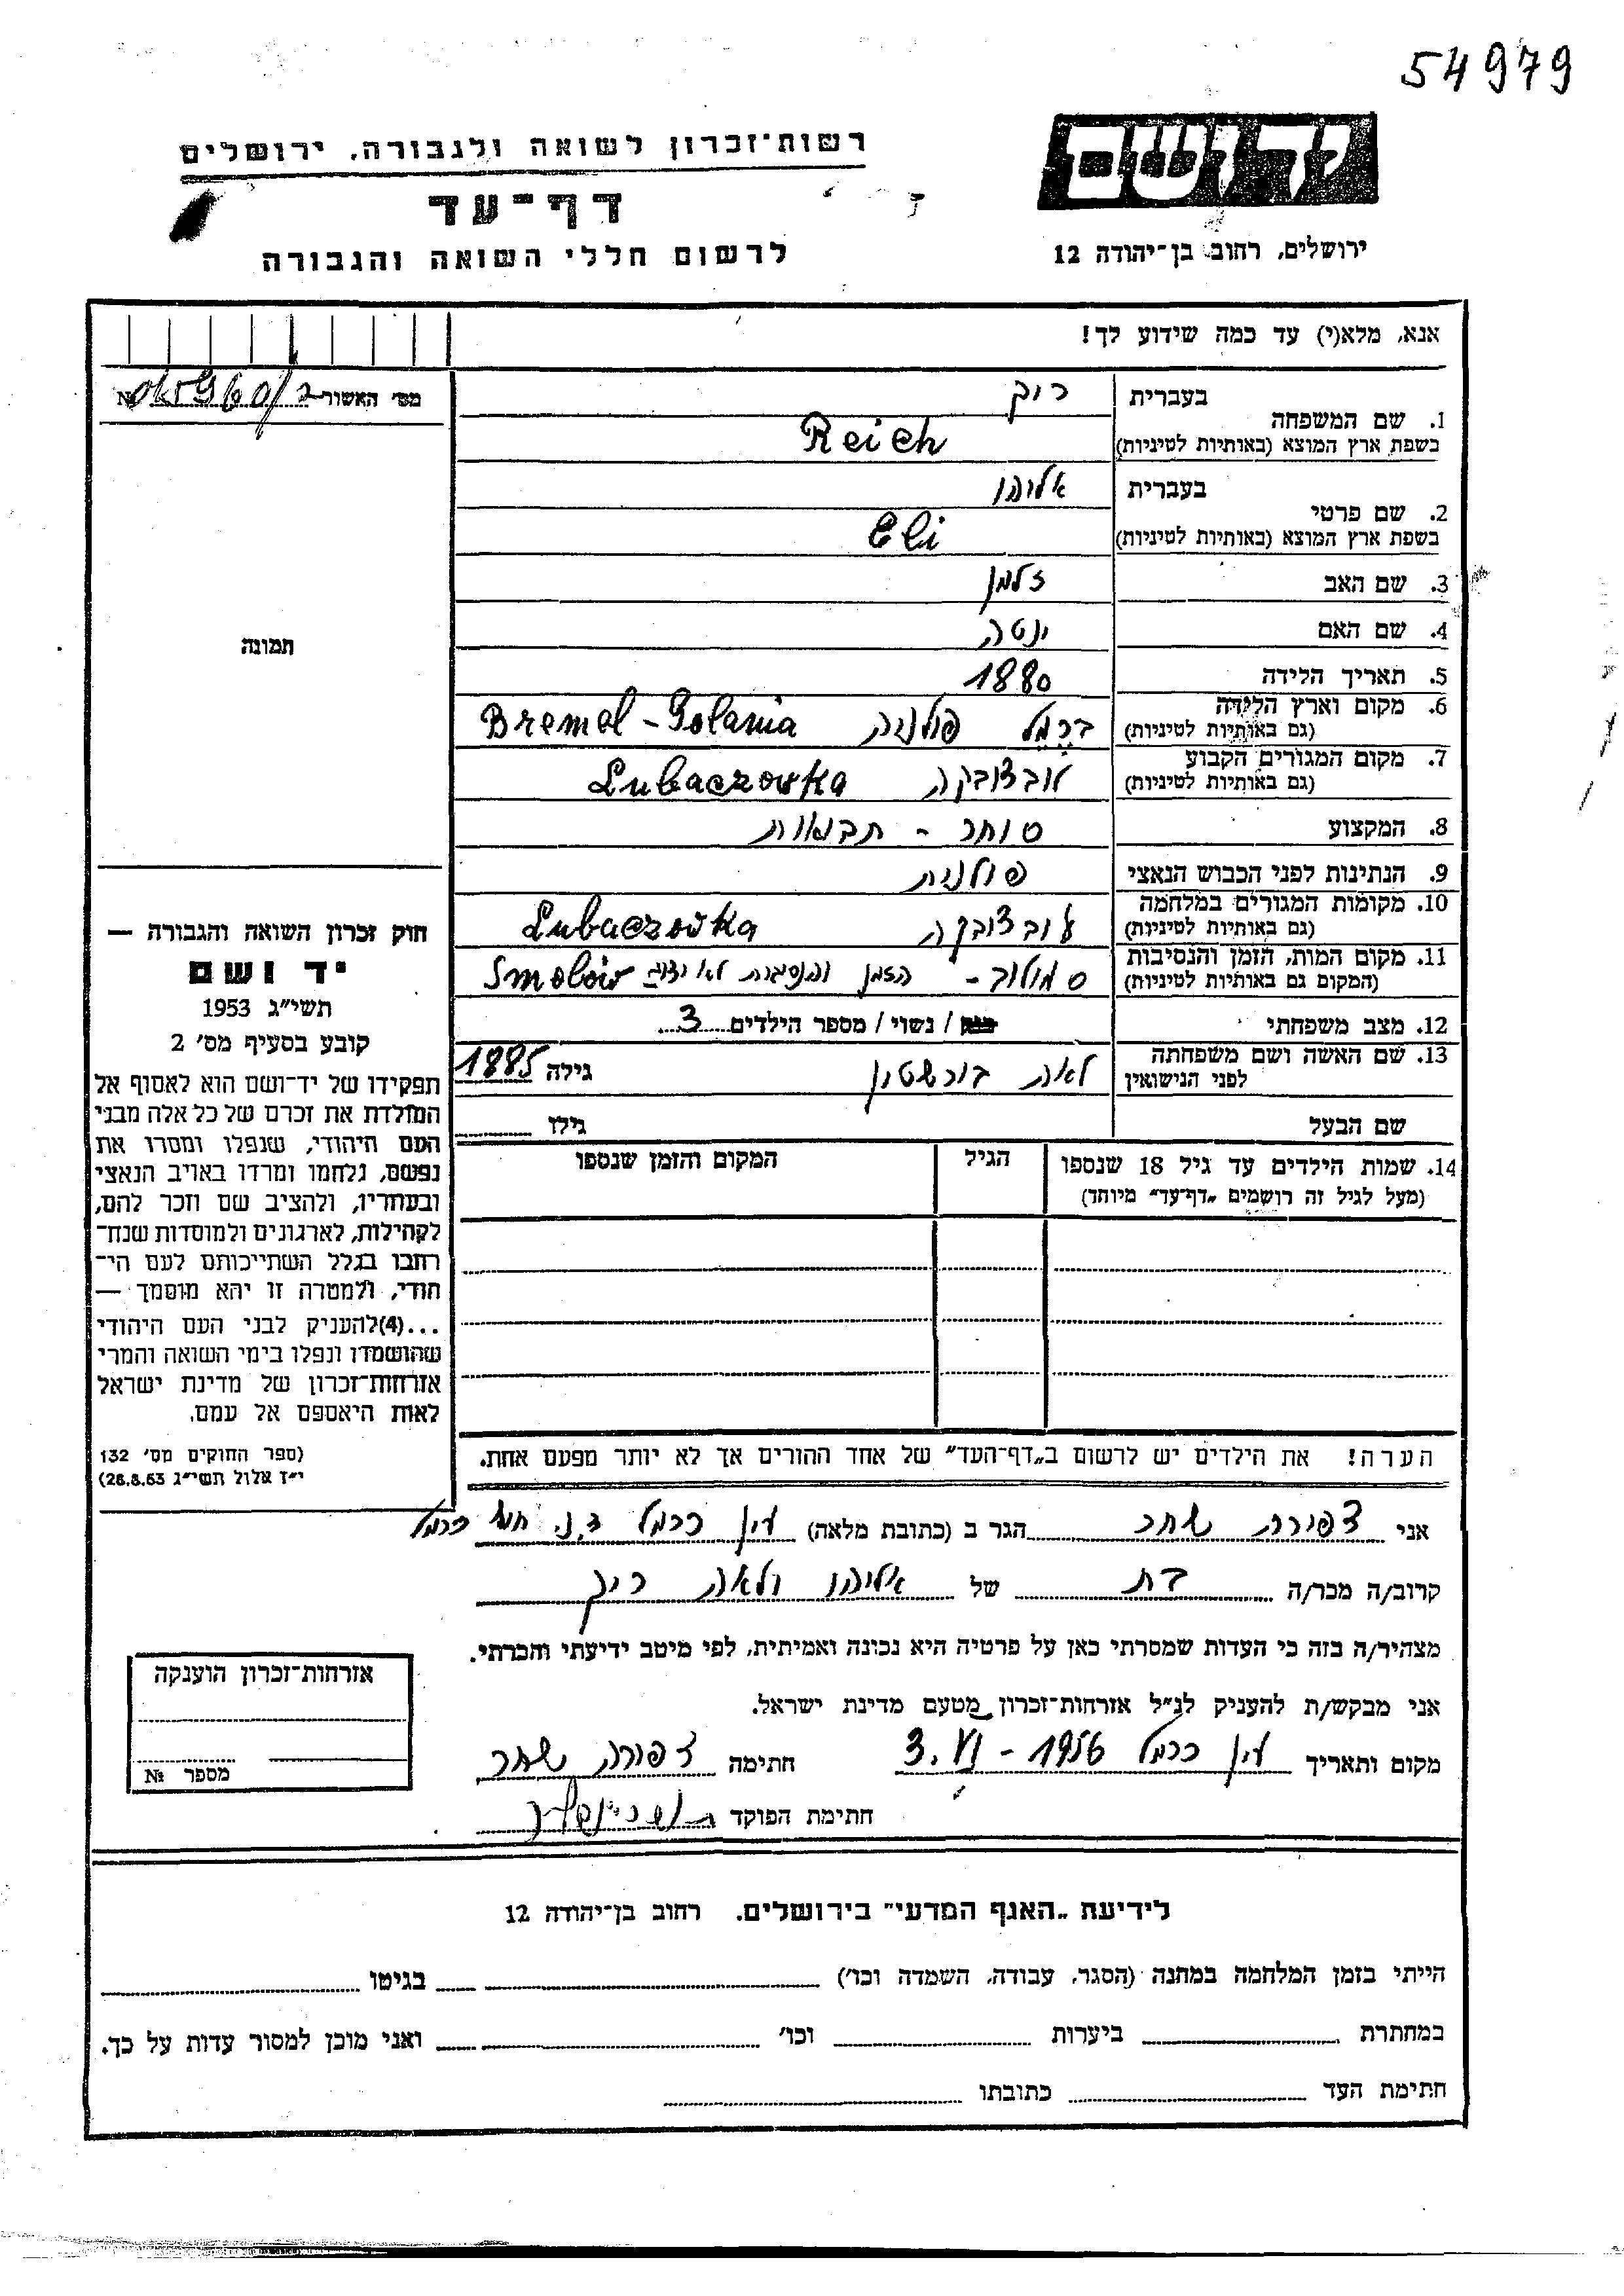 54979
יד ושם
רשות־זכרון לשואה ולגבורה, ירושלים
דף־עד
ירושלים, רחוב בן־יהודה 12
לרשום חללי השואה והגבורה
אנא, מלא(י) עד כמה שידוע לך!
מס׳ האשור
בעברית רייך
1. שם המשפחה
בשפת ארץ המוצא (באותיות לטיניות) Reich
בעברית אליהו
2. שם פרטי
בשפת ארץ המוצא (באותיות לטיניות) Eli
3. שם האב זלמן
4. שם האם ינטה
5. תאריך הלידה 1880
6. מקום וארץ הלידה ברמל פולניה Bremel - Polania
(גם באותיות לטיניות)
7. מקום המגורים הקבוע לובצובקה Lubaczowka
(גם באותיות לטיניות)
8. המקצוע סוחר - תבואות
9. הנתינות לפני הכבוש הנאצי פולנית
10. מקומות המגורים במלחמה לובצובקה Lubaczowka
(גם באותיות לטיניות)
11. מקום המות, הזמן והנסיבות סמולוב - הזמן והנסיבות לא ידוע Smolów
(המקום גם באותיות לטיניות)
12. מצב משפחתי / נשוי / מספר הילדים 3
13. שם האשה ושם משפחתה לאה בורשטין גילה 1885
לפני הנישואין
שם הבעל גילו
14. שמות הילדים עד גיל 18 שנספו הגיל המקום והזמן שנספו
(מעל לגיל זה רושמים „דף־עד״ מיוחד)
הערה! את הילדים יש לרשום ב„דף־העד״ של אחד ההורים אך לא יותר מפעם אחת.
תמונה
חוק זכרון השואה והגבורה —
יד ושם
תשי״ג 1953
קובע בסעיף מס׳ 2
תפקידו של יד־ושם הוא לאסוף אל
המולדת את זכרם של כל אלה מבני
העם היהודי, שנפלו ומסרו את
נפשם, נלחמו ומרדו באויב הנאצי
ובעוזריו, ולהציב שם וזכר להם,
לקהילות, לארגונים ולמוסדות שנח־
רחבו בגלל השתייכותם לעם הי־
הודי, ולמטרה זו יהא מוסמך —
...(4)להעניק לבני העם היהודי
שהושמדו ונפלו בימי השואה והמרי
אזרחות־זכרון של מדינת ישראל
לאות היאספם אל עמם.
(ספר החוקים מס׳ 132
י״ז אלול תשי״ג 28.8.53)
אני צפורה שחר הגר ב (כתובת מלאה) עין כרמל ד.נ. חוף כרמל
קרוב/ה מכר/ה בת של אליהו ולאה רייך
מצהיר/ה בזה כי העדות שמסרתי כאן על פרטיה היא נכונה ואמיתית, לפי מיטב ידיעתי והכרתי.
אני מבקש/ת להעניק לנ״ל אזרחות־זכרון מטעם מדינת ישראל.
מקום ותאריך עין כרמל 3. VI - 1956 חתימה צפורה שחר
חתימת הפוקד
אזרחות־זכרון הוענקה
מספר №
לידיעת „האגף המדעי״ בירושלים. רחוב בן־יהודה 12
הייתי בזמן המלחמה במחנה (הסגר, עבודה, השמדה וכו׳) בגיטו
במחתרת ביערות וכו׳ ואני מוכן למסור עדות על כך.
חתימת העד כתובתו